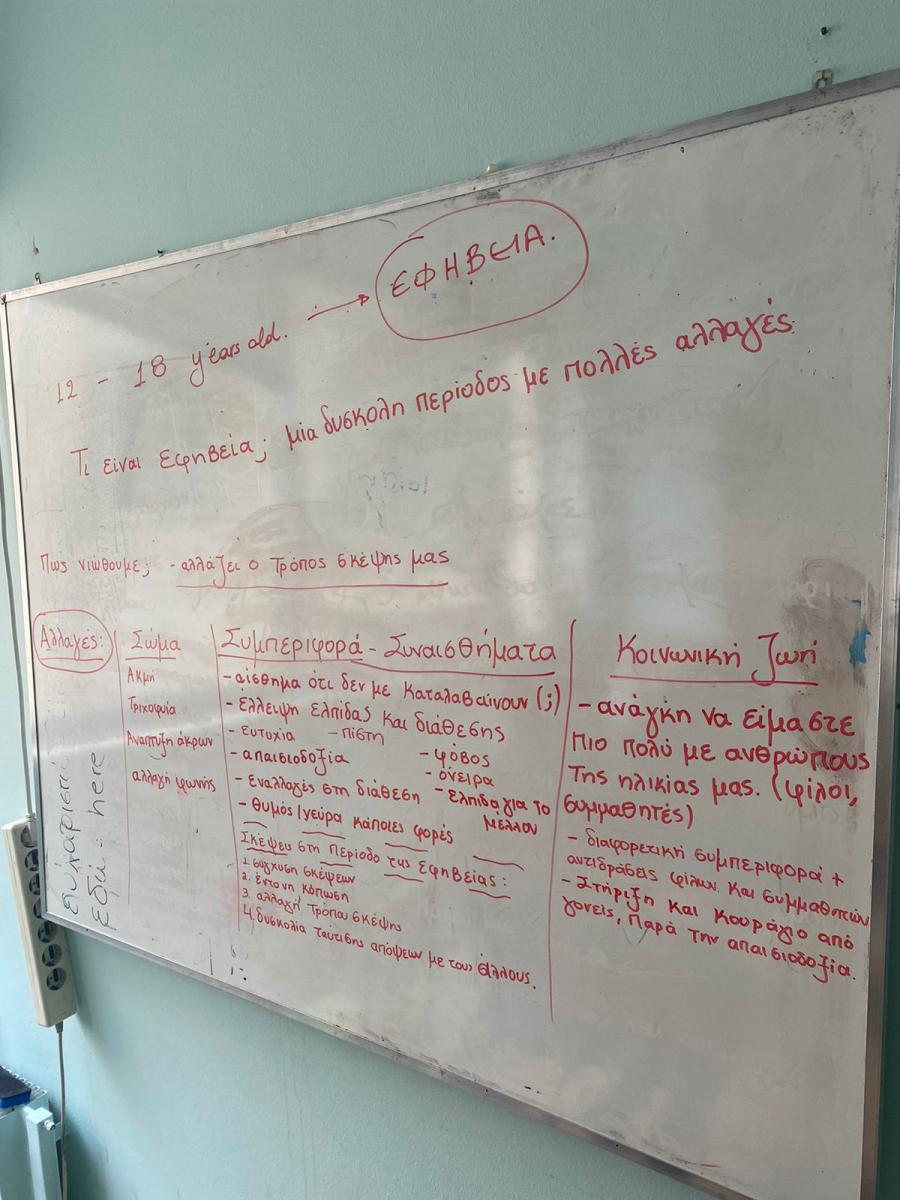 ΕΦΗΒΕΙΑ.
12 - 18 years old. →
Τι είναι Εφηβεία; μια δυσκολη περίοδος με πολλές αλλαγές.
Πως νιώθουμε; - αλλάζει ο Τρόπος σκέψης μας
Αλλαγές:
Σώμα
Ακμή
Τριχοφυία
Αναπτυξη άκρων
αλλαγή φωνής
Συμπεριφορά - Συναισθήματα
- αίσθημα ότι δεν με Καταλαβαίνουν (;)
- έλλειψη ελπίδας και διάθεσης
- ευτυχία - πίστη
- απαισιοδοξία - φόβος
- όνειρα
- Εναλλαγές στη διάθεση - Ελπίδα για το
μέλλον
- Θυμός/νεύρα κάποιες φορές
Σκέψεις στη Περίοδο της Εφηβείας:
1. σύγχυση σκέψεων
2. έντονη κόπωση
3. αλλαγή Τρόπου σκέψης
4. δυσκολία ταύτισης απόψεων με τους άλλους.
Κοινωνική Ζωή
- ανάγκη να είμαστε
πιο πολύ με ανθρώπους
της ηλικίας μας. (φίλοι,
συμμαθητές)
- διαφορετική συμπεριφορά +
αντιδράσεις φίλων και συμμαθητών
- Στήριξη και κουράγιο από
γονείς, Παρά την απαισιοδοξία.
εδώ = here